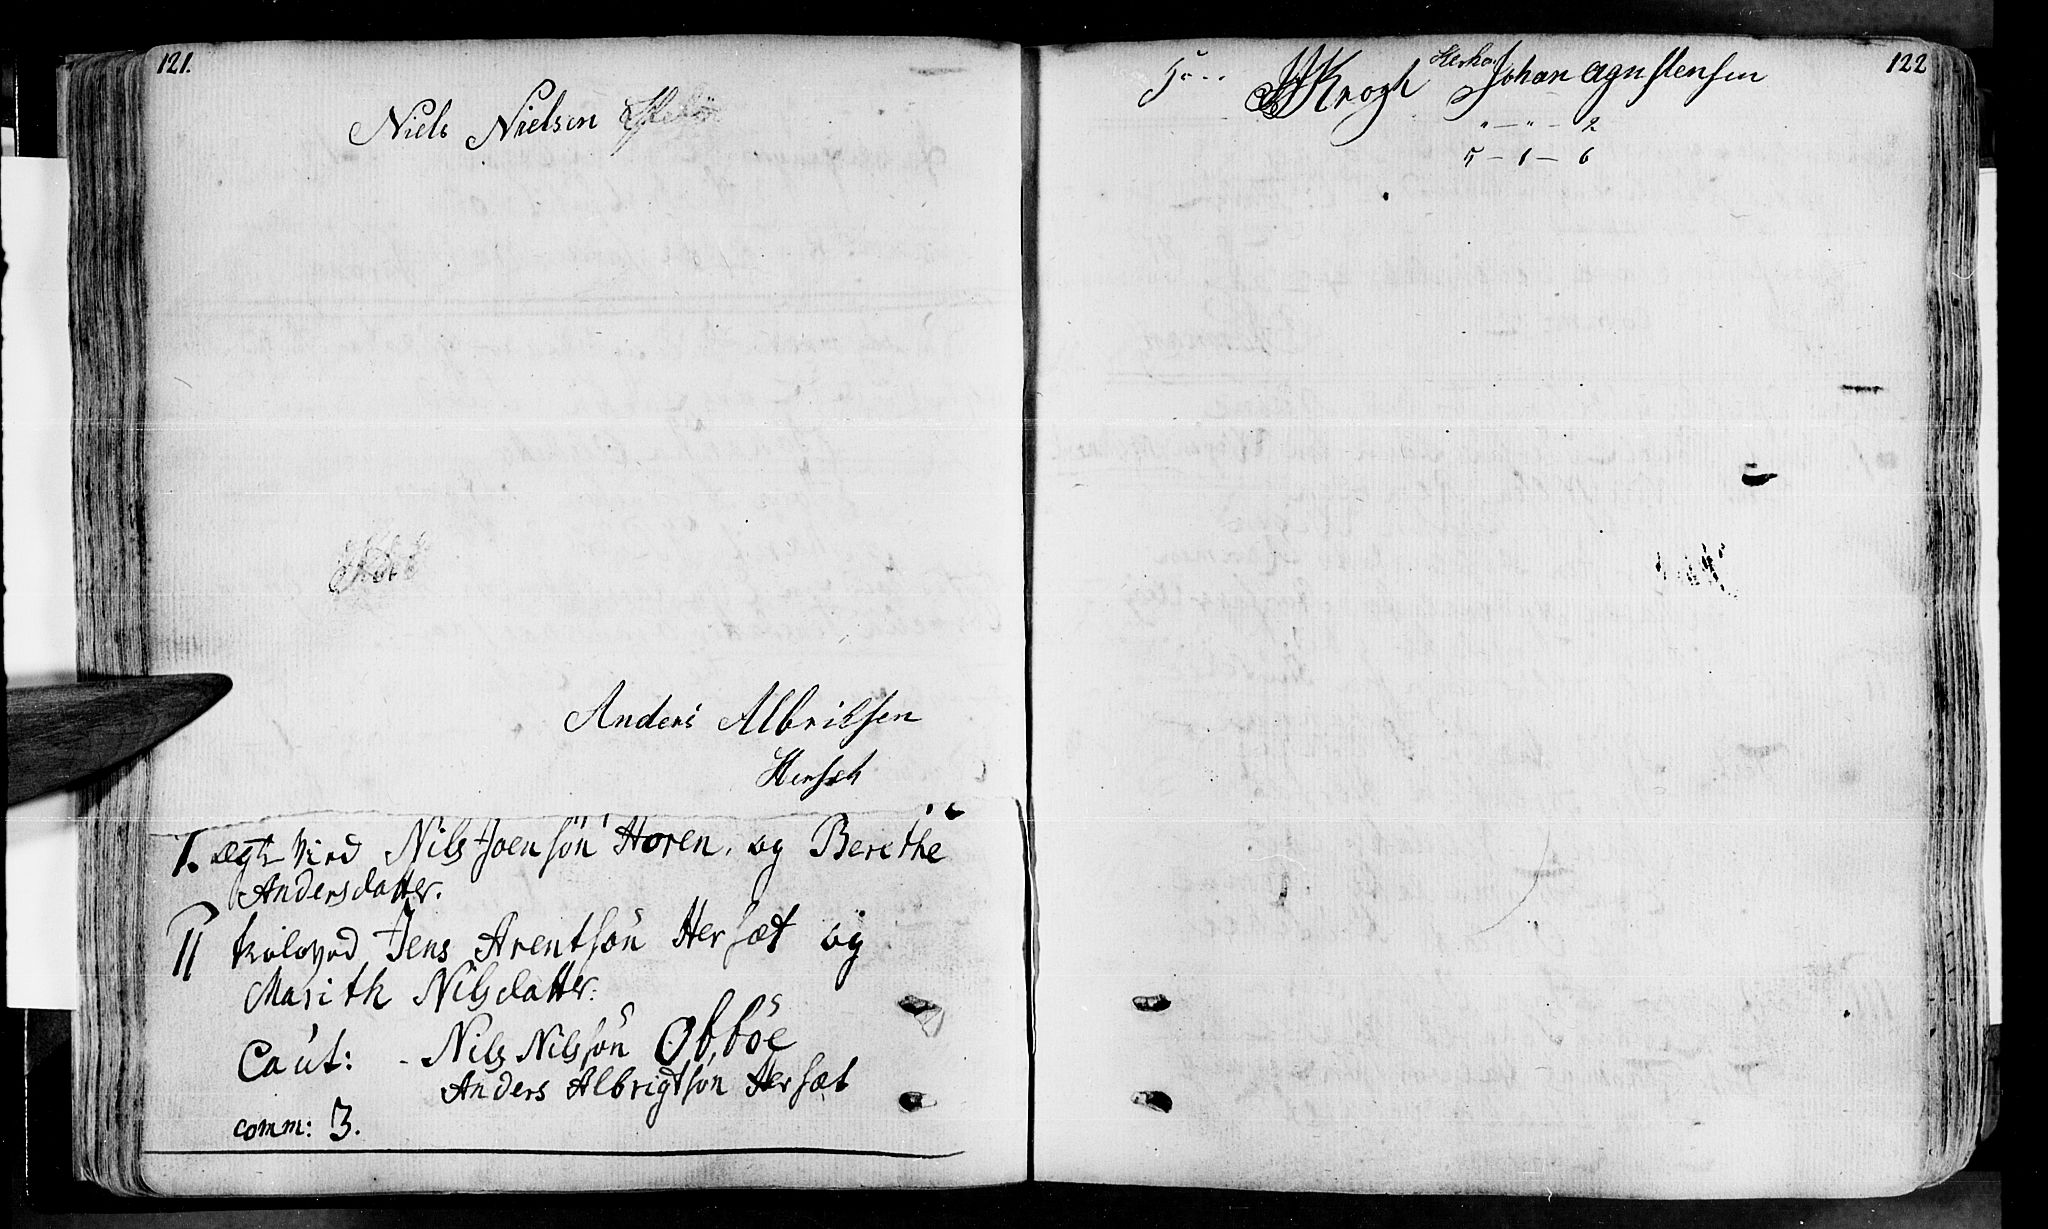 121.
Niels Nielsen
Anders Albriksen
Hersæt
1. ægte vied Nils Joensøn Horen, og Berethe
Andersdatter.
11 trolovd Jens Arentsøn Hersæt og
Marith Nilsdatter.
Caut: - Nils Nilssøn Obbøe
Anders Albrigtsøn Hersæt
comm: 3.
122
5 - - Krogh Johan Agustensen
" - " - 2
5 - 1 - 6